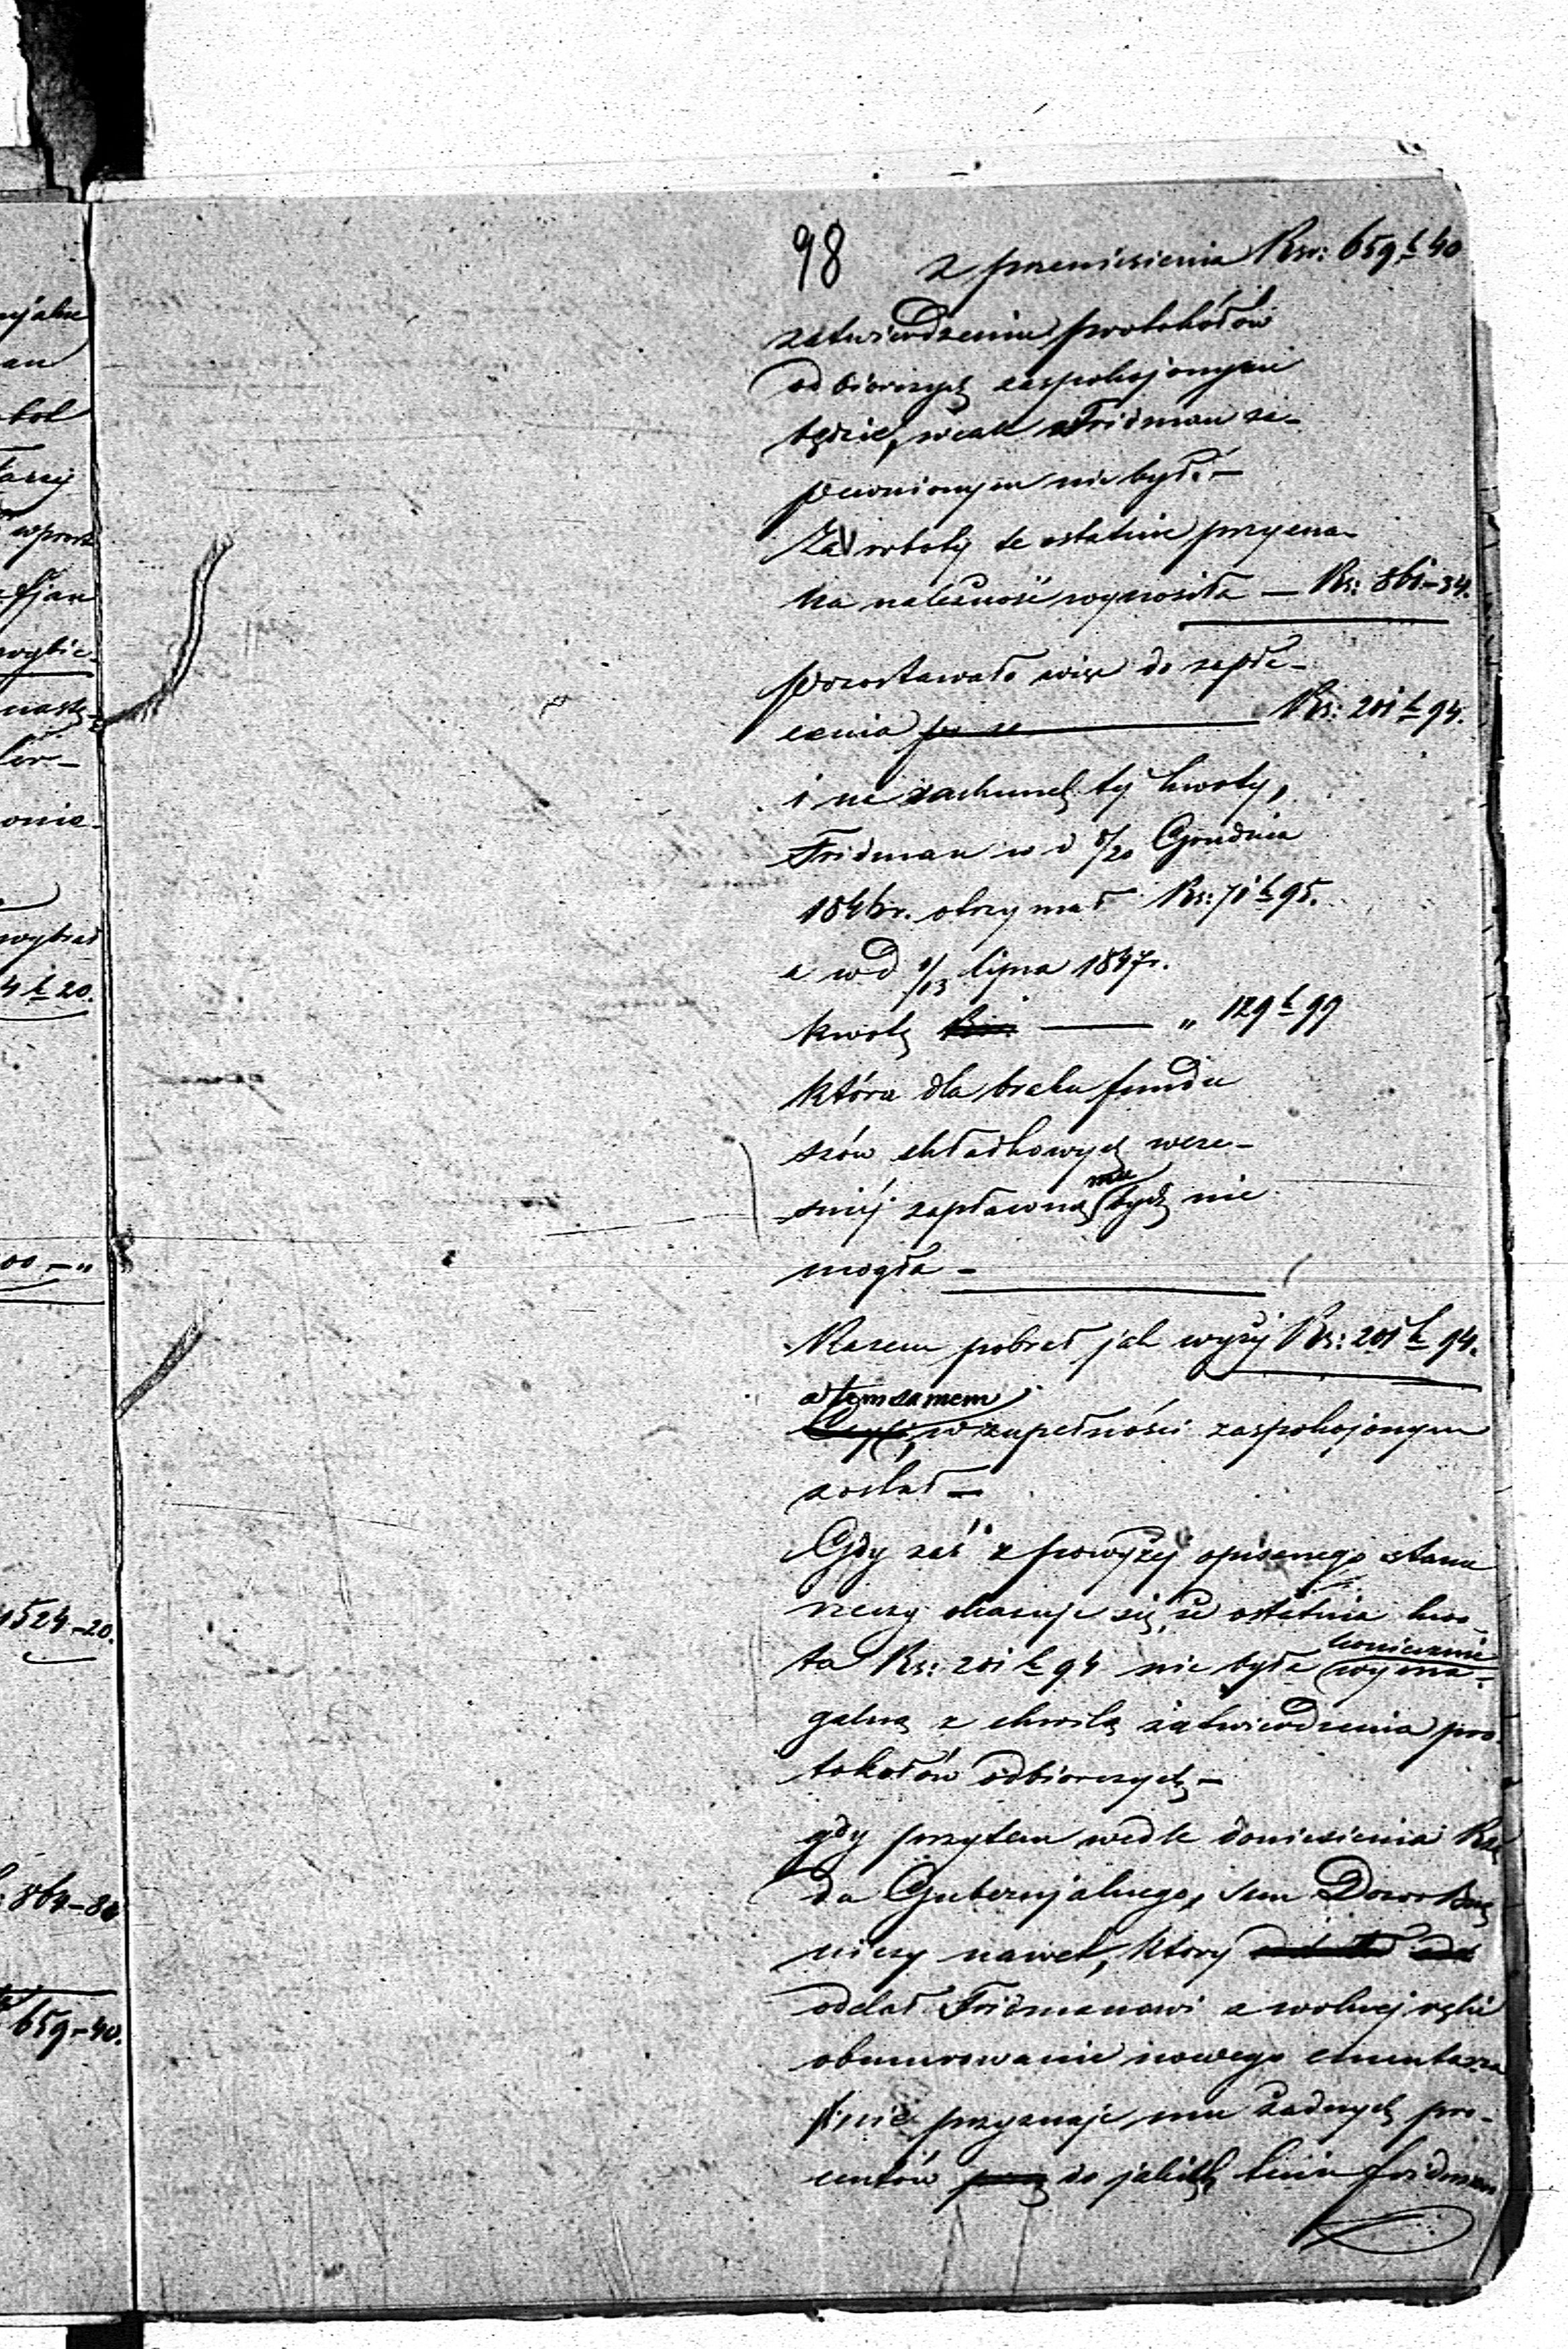 98
z przeniesienia Rsr: 659 k 40
zatwierdzeniu protokołów
odbiorczych zaspokojonym
będzie, wcale Fridman za-
pewnionym nie był. –
Za roboty te ostatnie przyzna-
na należność wynosiła – Rs: 861 – 34.
pozostawało więc do zapła-
cenia Rs: 201 k 94.
i na rachunek tej kwoty,
Fridman w d 8/20 Grudnia
1846 r. otrzymał Rs: 71 k 95.
a w d 1/13 lipca 1847 r.
kwotę — „ 129 k 99
która dla braku fundu
szów składkowych wcze-
śniej zapłaconą mu bydź nie
mogła –
Razem pobrał jak wyżej Rs: 201 k 94.
a tem samem
w zupełności zaspokojonym
został –
Gdy zaś z powyżej opisanego stanu
rzeczy okazuje się, że ostatnia kwo-
ta Rs: 201 k 94 nie była koniecznie wyma-
galną z chwilą zatwierdzenia pro-
tokołów odbiorczych –
gdy przytem wedle doniesienia Rzą
du Gubernjalnego, sam Dozór Bóż
niczy nawet, który
oddał Fridmanowi z wolnej ręki
obmurowanie nowego cmentarza
nie przyznaje mu żadnych pro-
centów do jakich Fridman
ujalne
an
wprost
nastę-
onie-
wybrał
4 k 20.
00 – „
1524 – 20.
864 – 80
659 – 40.